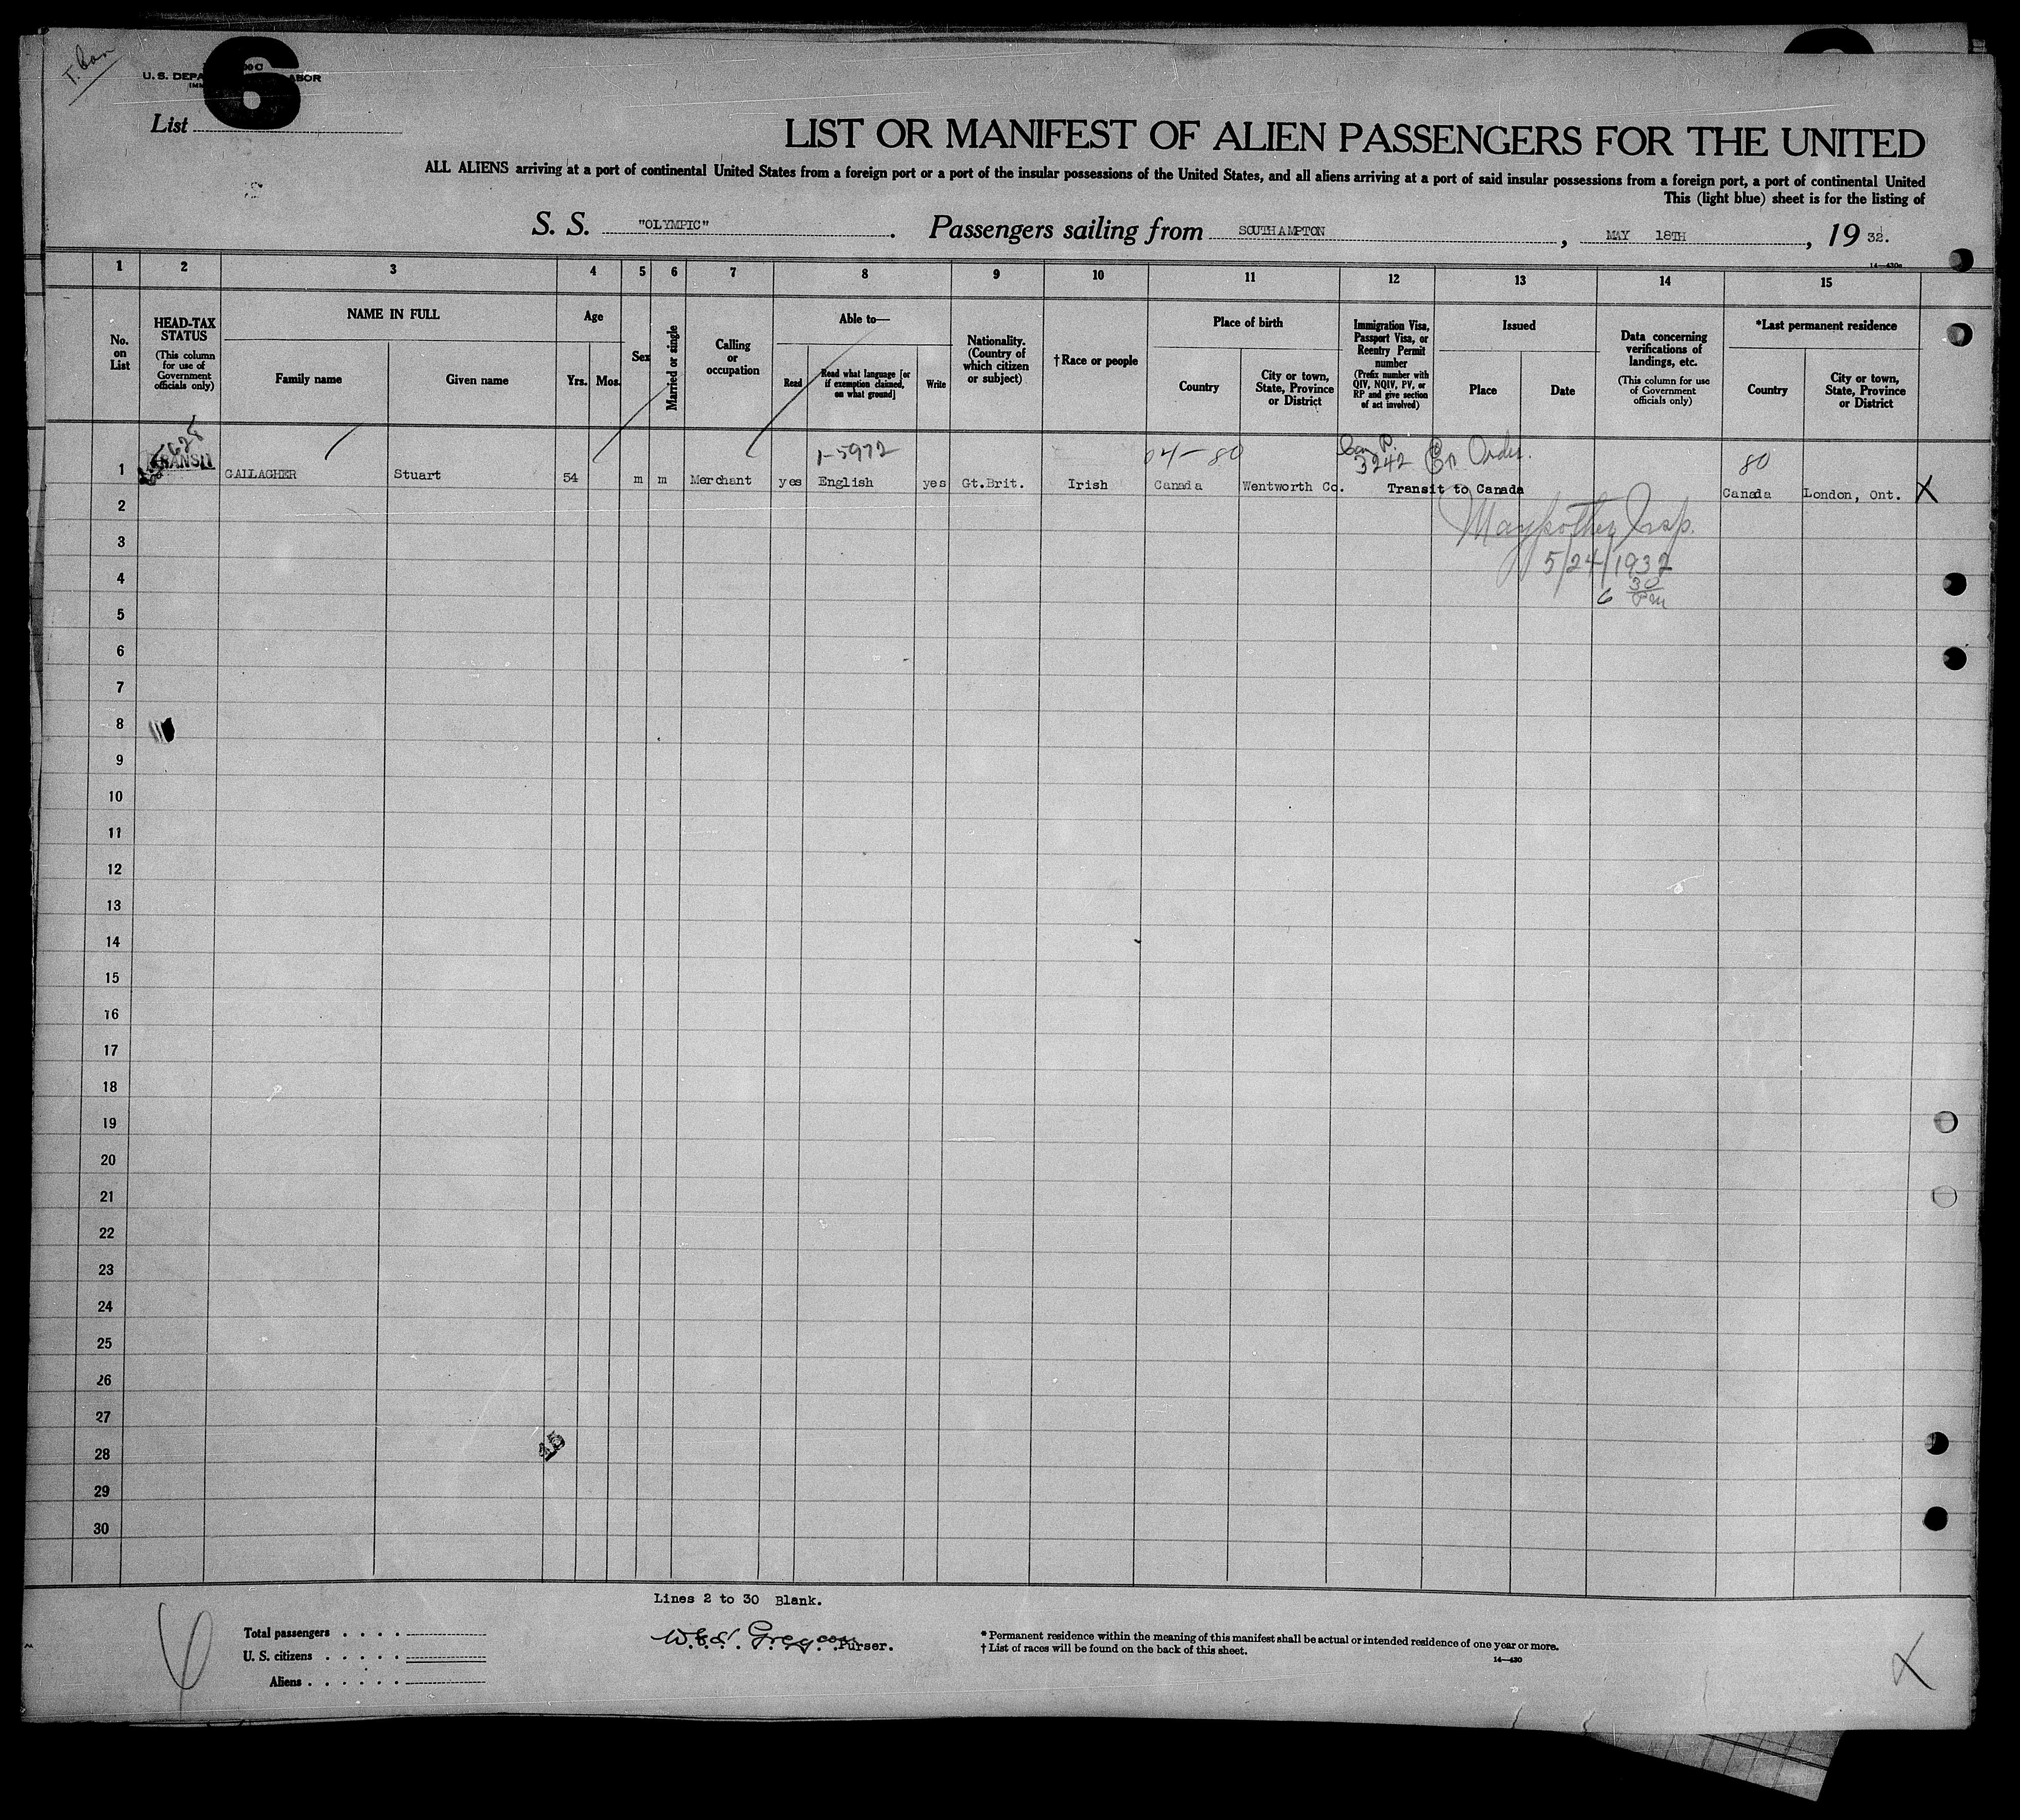 T. Can
6
U. S. DEPA ABOR
List
LIST OR MANIFEST OF ALIEN PASSENGERS FOR THE UNITED
ALL ALIENS arriving at a port of continental United States from a foreign port or a port of the insular possessions of the United States, and all aliens arriving at a port of said insular possessions from a foreign port, a port of continental United
This (light blue) sheet is for the listing of
S. S. "OLYMPIC". Passengers sailing from SOUTHAMPTON, MAY 18TH, 1932.
14—430a
1 2 3 4 5 6 7 8 9 10 11 12 13 14 15
No. on List
HEAD-TAX STATUS (This column for use of Government officials only)
NAME IN FULL
Family name
Given name
Age
Yrs. Mos.
Sex
Married or single
Calling or occupation
Able to—
Read
Read what language [or if exemption claimed, on what ground]
Write
Nationality. (Country of which citizen or subject)
†Race or people
Place of birth
Country
City or town, State, Province or District
Immigration Visa, Passport Visa, or Reentry Permit number (Prefix number with QIV, NQIV, PV, or RP and give section of act involved)
Issued
Place
Date
Data concerning verifications of landings, etc. (This column for use of Government officials only)
*Last permanent residence
Country
City or town, State, Province or District
1-5972 04-80 Can P. 3242 Order. 80
1 TRANSIT GALLAGHER Stuart 54 m m Merchant yes English yes Gt.Brit. Irish Canada Wentworth Co. Transit to Canada Canada London, Ont. X
2
3
4
5
6
7
8
9
10
11
12
13
14
15
16
17
18
19
20
21
22
23
24
25
26
27
28
29
30
Insp.
5/24/1932
6 30 PM
45
Lines 2 to 30 Blank.
Total passengers . . . .
U. S. citizens . . . . .
Aliens . . . . . .
Purser.
* Permanent residence within the meaning of this manifest shall be actual or intended residence of one year or more.
† List of races will be found on the back of this sheet.
14—430
X